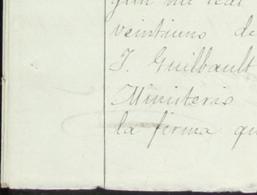 mil
veintiuno de
J. Guilbault
Ministerio
la firma qu